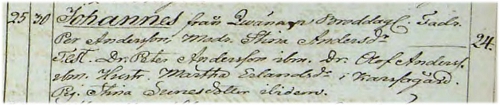 25 30 Johannes från Qvänarp Broddag. Fadr.
Per Andersson Madr. Stina Andersdr 24.
Test. Dr. Peter Andersson ibm. dr. Olof Anders.
ibm. Hustr. Märtha Erlandsdr i
Pig. Stina Svensdotter ibidem.